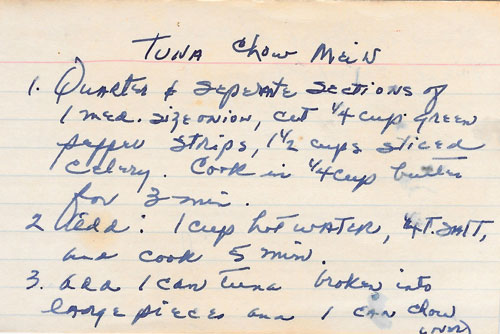 TUNA Chow Mein
1. Quarter & seperate sections of
1 med. size onion, cut 1/4 cup green
pepper strips, 1 1/2 cups sliced
celery. Cook in 1/4 cup butter
for 3 min.
2 Add: 1 cup hot water, 1/4 t. salt,
and cook 5 min.
3. add 1 can tuna broken into
large pieces and 1 can chow